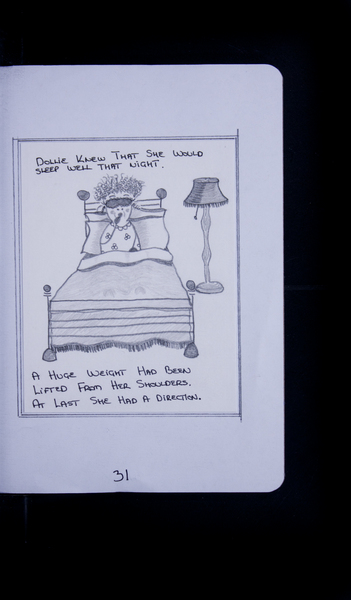 Dollie Knew That She Would
Sleep Well That Night.
A Huge Weight Had Been
Lifted From Her Shoulders.
At Last She Had A Direction.
31